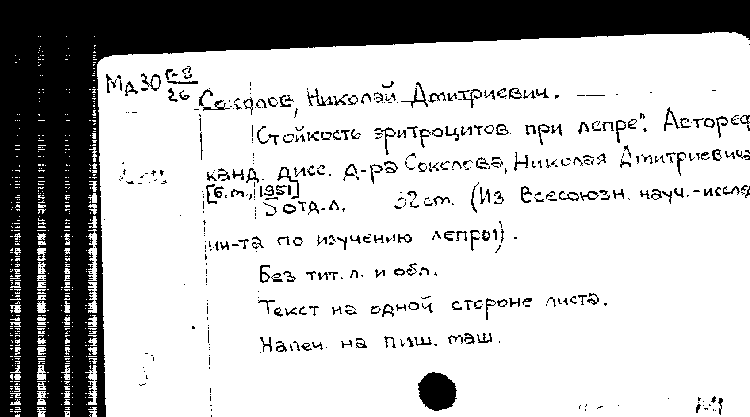 Мд30 Г-8/26 Соколов, Николай Дмитриевич.
Стойкость эритроцитов при лепре. Автореф
канд. дисс. д-ра Соколова, Николая Дмитриевича
[б.м., 1951]
5 отд.л. 32 cm. (Из Всесоюзн. науч.-иссле
ин-та по изучению лепры).
Без тит. л. и обл.
Текст на одной стороне листа.
Напеч. на пиш. маш.